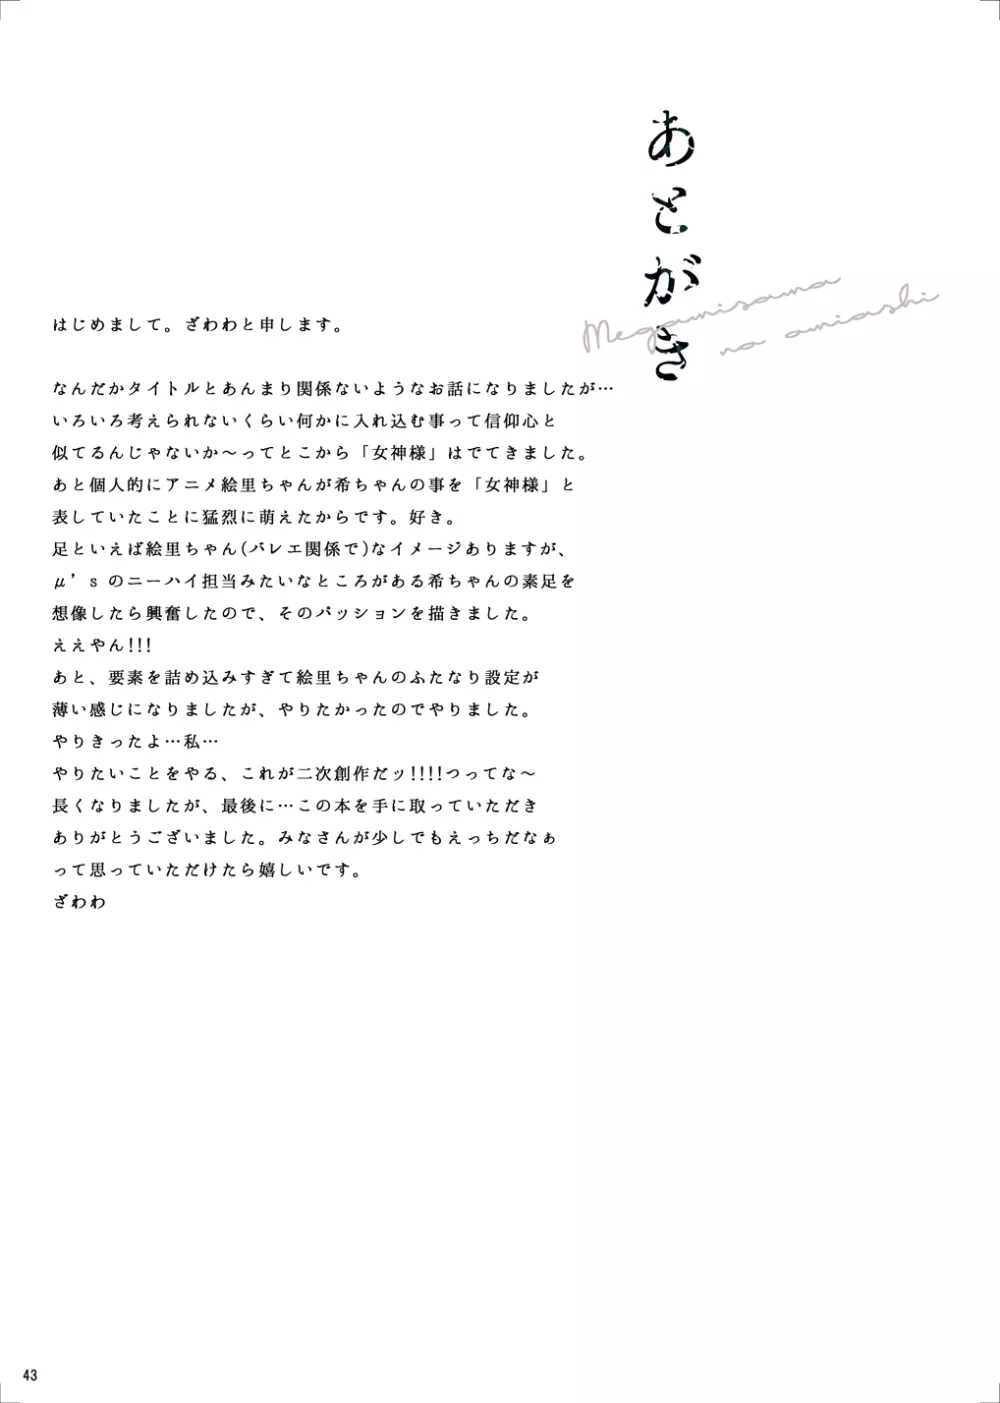 あとがき
Megamisama
no amiashi
はじめまして。ざわわと申します。
なんだかタイトルとあんまり関係ないようなお話になりましたが…
いろいろ考えられないくらい何かに入れ込む事って信仰心と
似てるんじゃないか〜ってとこから「女神様」はでてきました。
あと個人的にアニメ絵里ちゃんが希ちゃんの事を「女神様」と
表していたことに猛烈に萌えたからです。好き。
足といえば絵里ちゃん(バレエ関係で)なイメージありますが、
μ’s のニーハイ担当みたいなところがある希ちゃんの素足を
想像したら興奮したので、そのパッションを描きました。
ええやん!!!
あと、要素を詰め込みすぎて絵里ちゃんのふたなり設定が
薄い感じになりましたが、やりたかったのでやりました。
やりきったよ…私…
やりたいことをやる、これが二次創作だッ!!!!つってな〜
長くなりましたが、最後に…この本を手に取っていただき
ありがとうございました。みなさんが少しでもえっちだなぁ
って思っていただけたら嬉しいです。
ざわわ
43